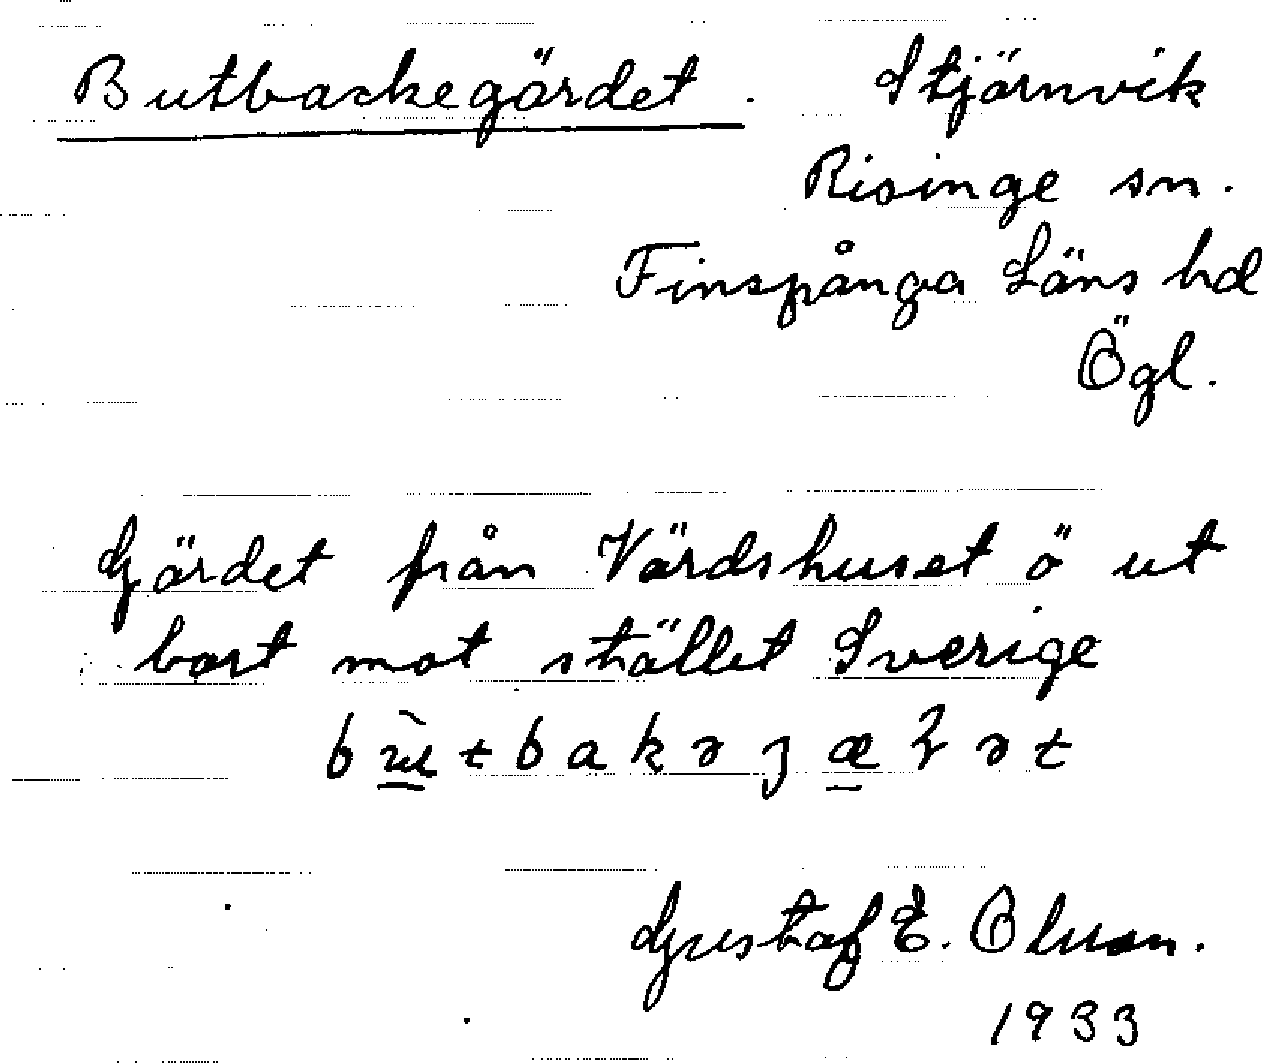 Butbackegärdet. Stjärnvik
Risinge sn.
Finspånga Läns hd
Ögl.
Gärdet från Värdshuset ö ut
bort mot stället Sverige
Gustaf E. Olsson.
1933